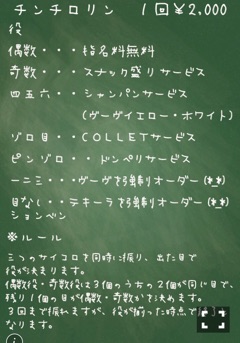 チンチロリン 1回¥2,000
役
偶数・・・指名料無料
奇数・・・スナック盛りサービス
四五六・・シャンパンサービス
(ヴーヴイエロー・ホワイト)
ゾロ目・・COLLETサービス
ピンゾロ・・ドンペリサービス
一二三・・・ヴーヴを強制オーダー(*_*)
目なし・・テキーラを強制オーダー(*_*)
ションベン
※ルール
三つのサイコロを同時に振り、出た目で
役が決まります。
偶数役・奇数役は3個のうちの2個が同じ目で、
残り1個の目が偶数・奇数かを決めます。
3回まで振れますが、役が揃った時点で
なります。